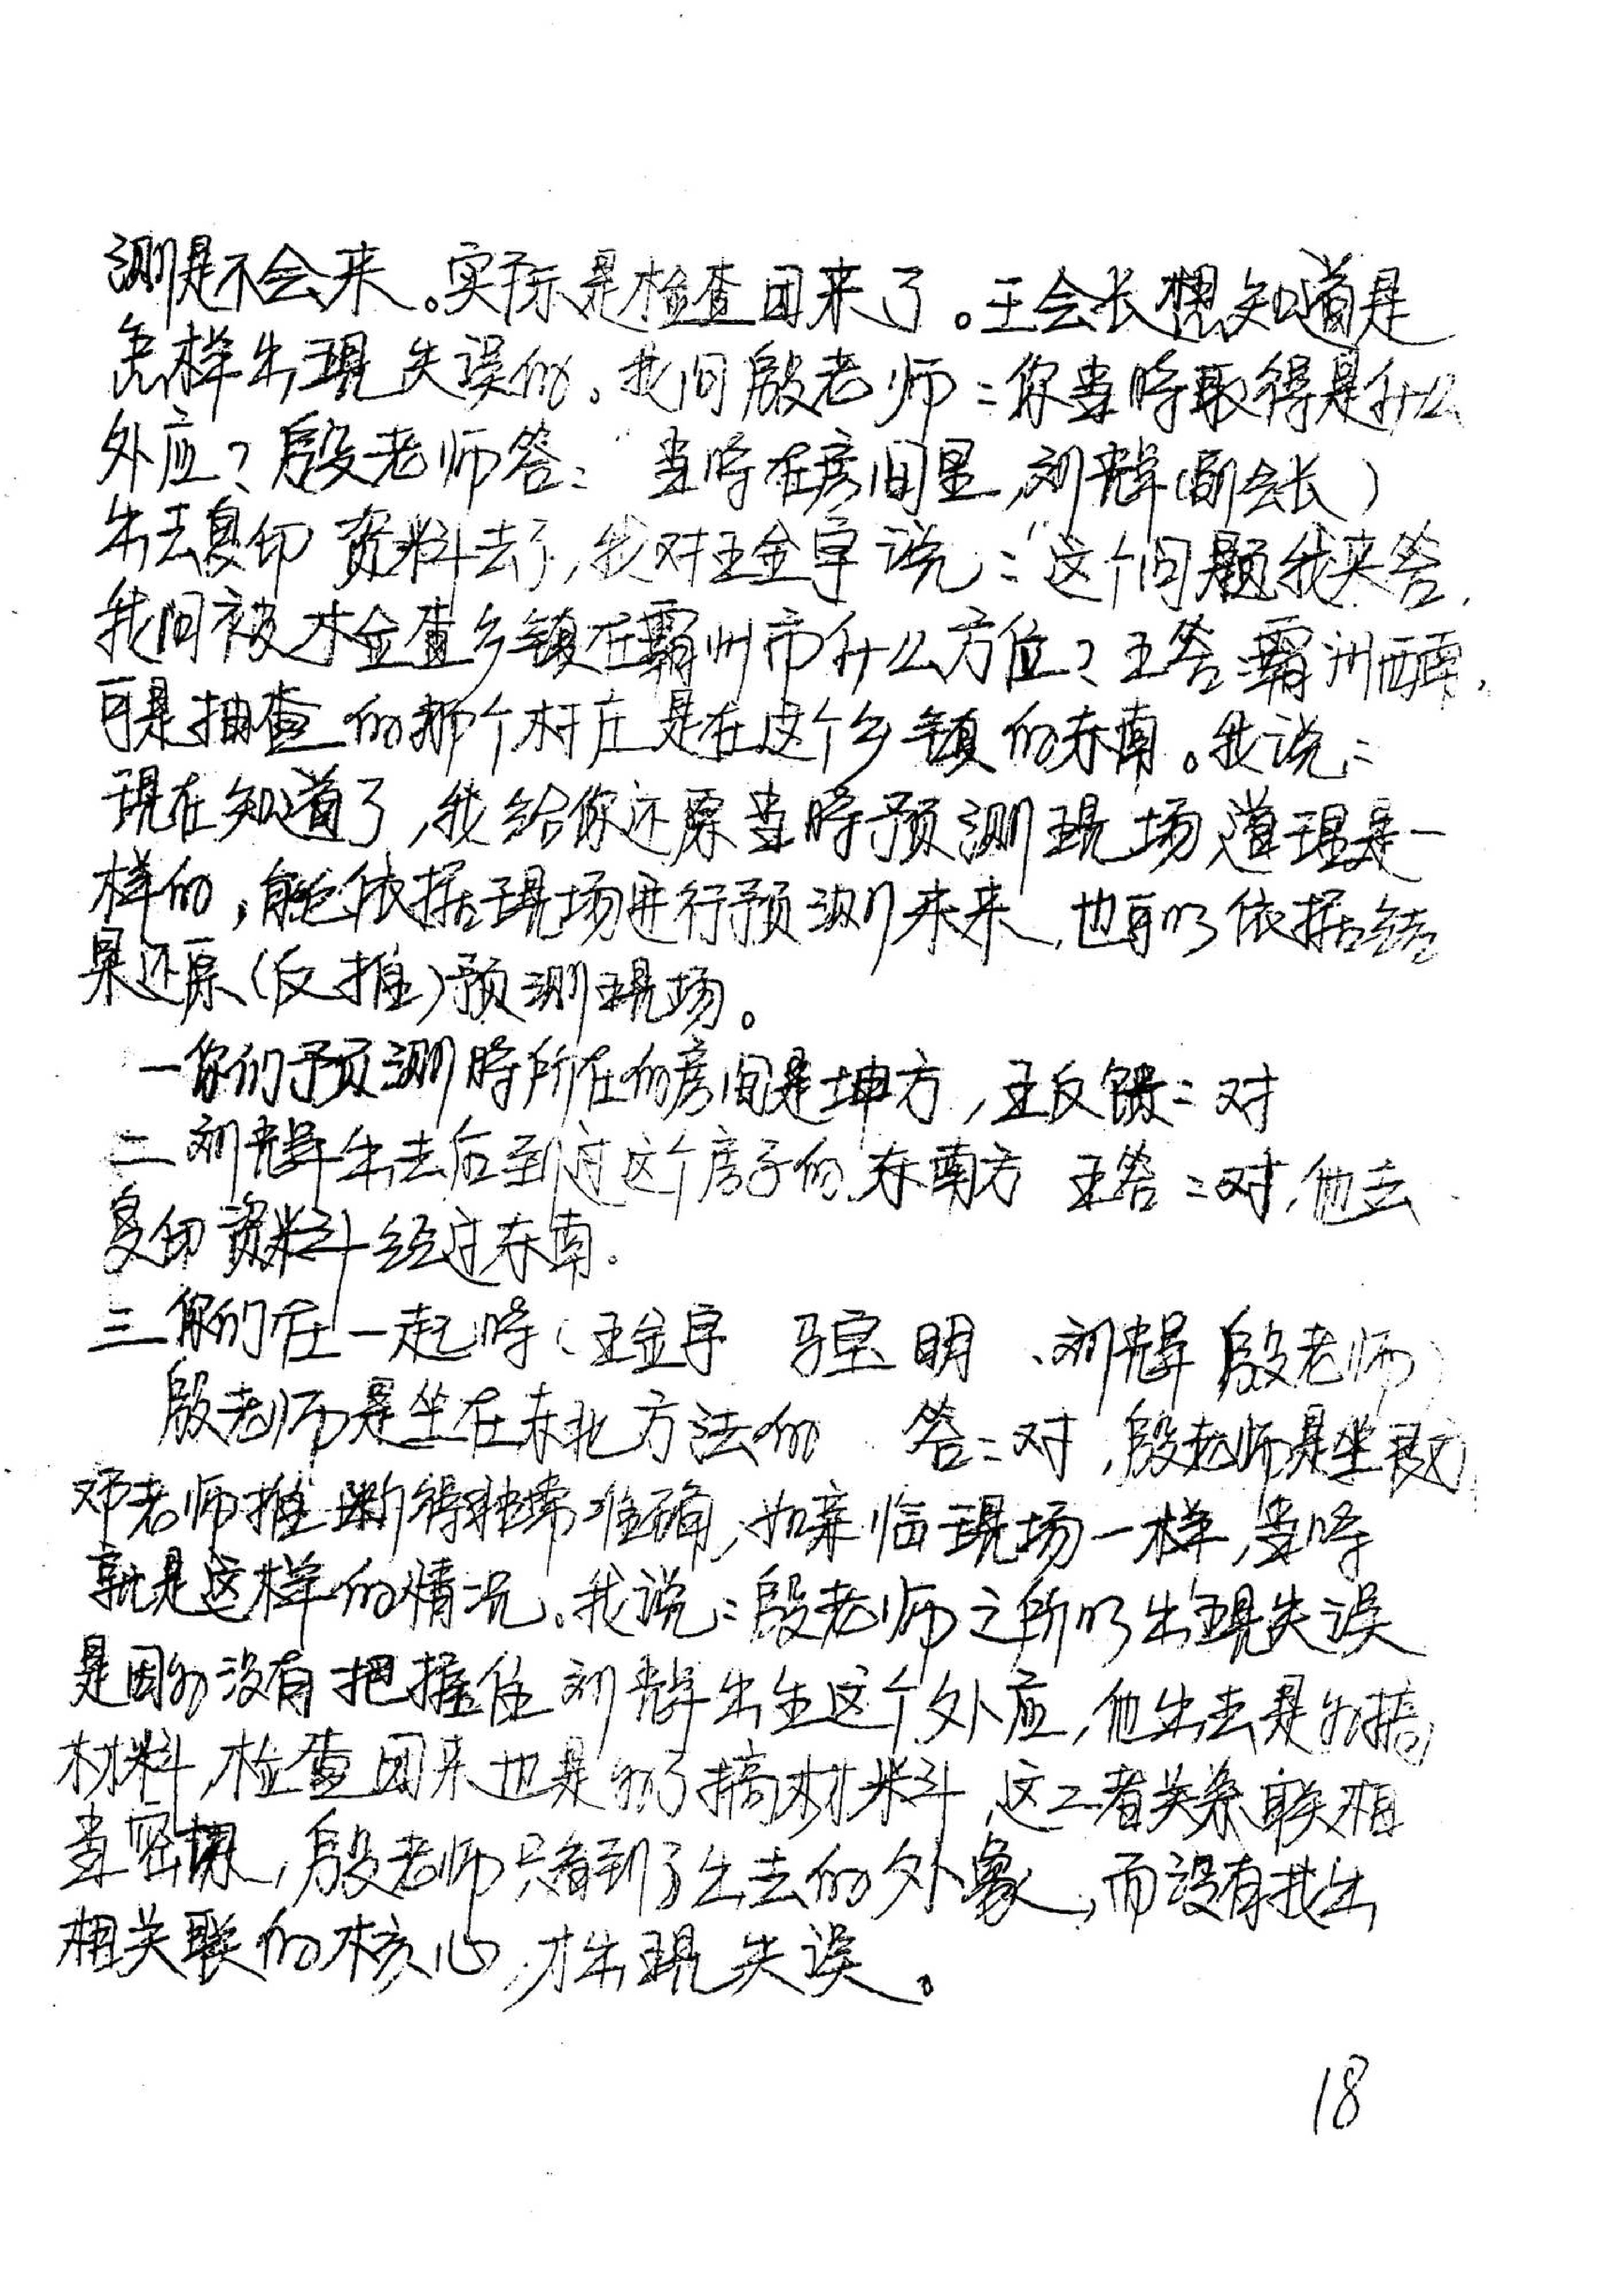 测是不会来。实际是检查团来了。王会长想知道是
怎样出现失误的。我问殷老师：你当时取得是什么
外应？殷老师答：当时在房间里，刘辉（副会长）
出去复印资料去了，我对王金宇说：“这个问题我来答，
我问被检查乡镇在霸州市什么方位？王答：霸州西南，
可是抽查的那个村庄是在这个乡镇的东南。我说：
现在知道了，我给你还原当时预测现场道理是一
样的，能依据现场进行预测未来，也可以依据结
果还原（反推）预测现场。
一你们预测时所在的房间是坤方，王反馈：对
二刘辉出去后到过这个房子的东南方 王答：对，他去
复印资料经过东南。
三你们在一起时（王金宇 马宝明、刘辉 殷老师）
殷老师是坐在东北方法的 答：对，殷老师是坐
邓老师推断得非常准确，如亲临现场一样，当时
就是这样的情况。我说：殷老师之所以出现失误
是因为没有把握住刘辉出生这个外应，他出去是为搞
材料，检查团来也是为了搞材料，这二者关系联相
当密切，殷老师只看到了出去的外象，而没有找出
相关联的核心，才出现失误。
18